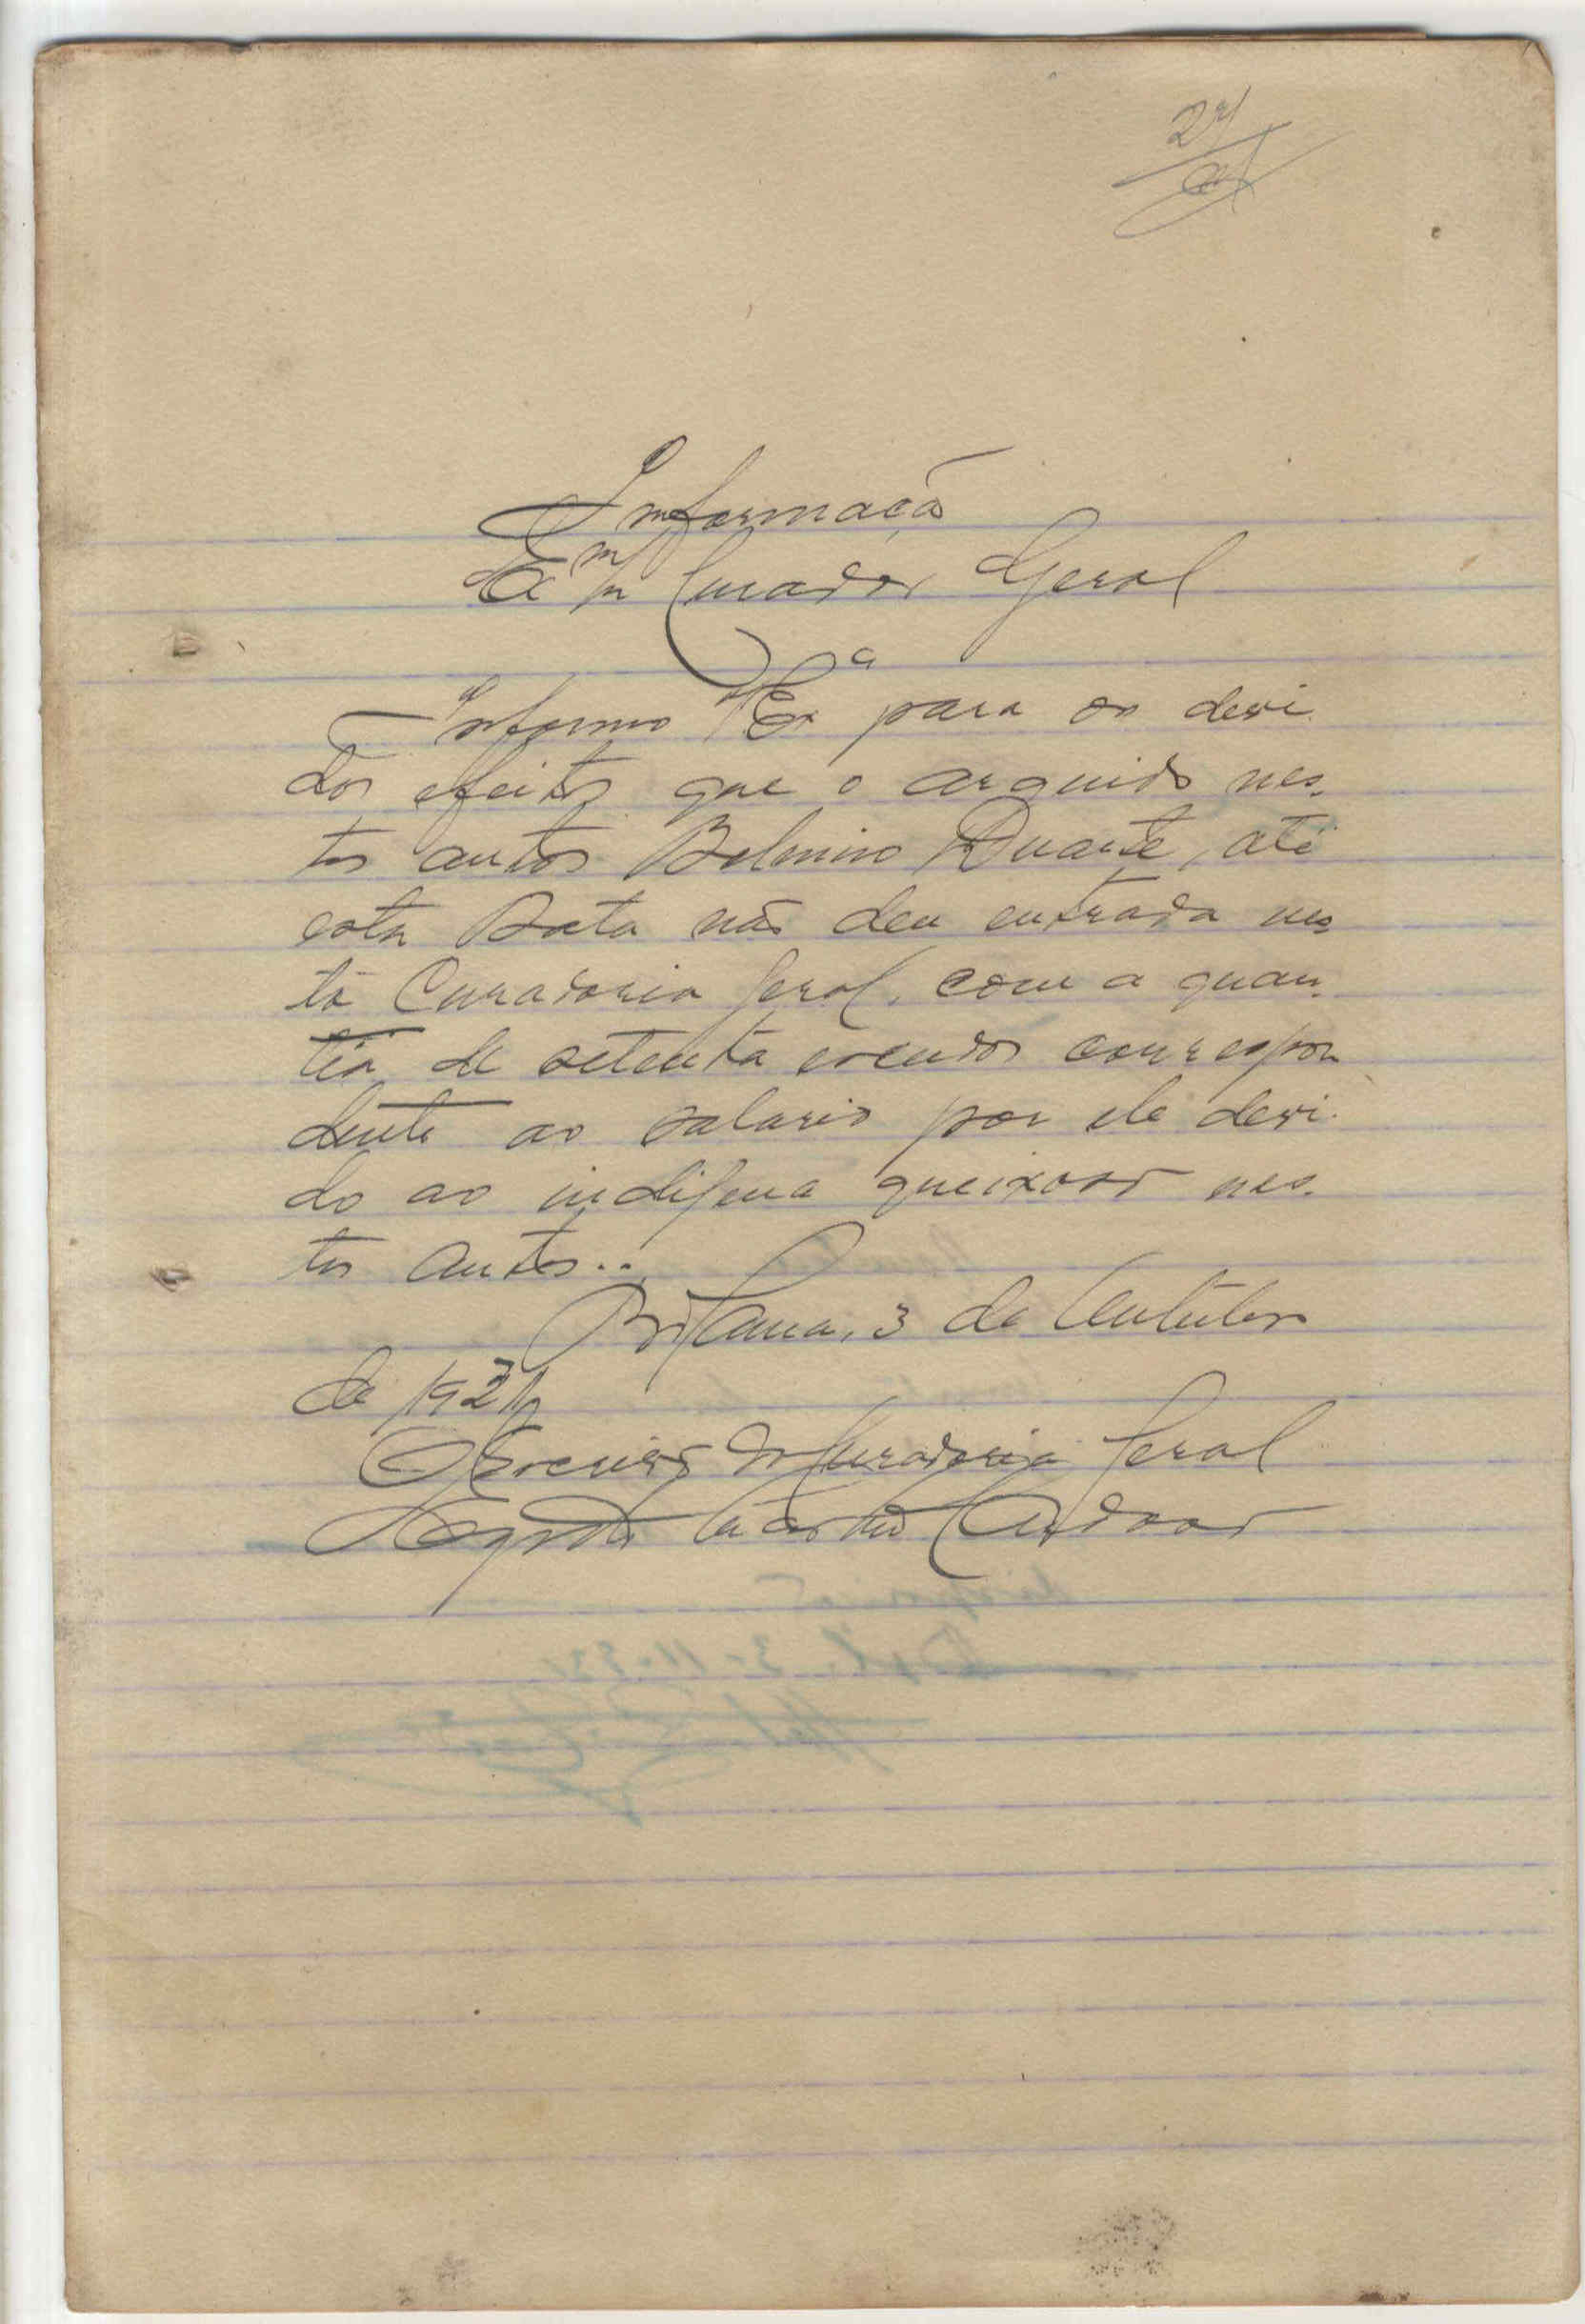 27
Informação
Exmº Curador Geral
Informo V Exª para os devi
dos efeitos que o arguido nes-
tes autos Belmiro Duarte, até
esta data não deu entrada nes
ta Curadoria Geral, com a quan-
tia de setenta escudos correspon
dente ao salario por ele devi-
do ao indigena queixoso nes-
tes autos..
Bolama, 3 de Outubro
de 1931
O Escrivão da Curadoria Geral
Cardoso